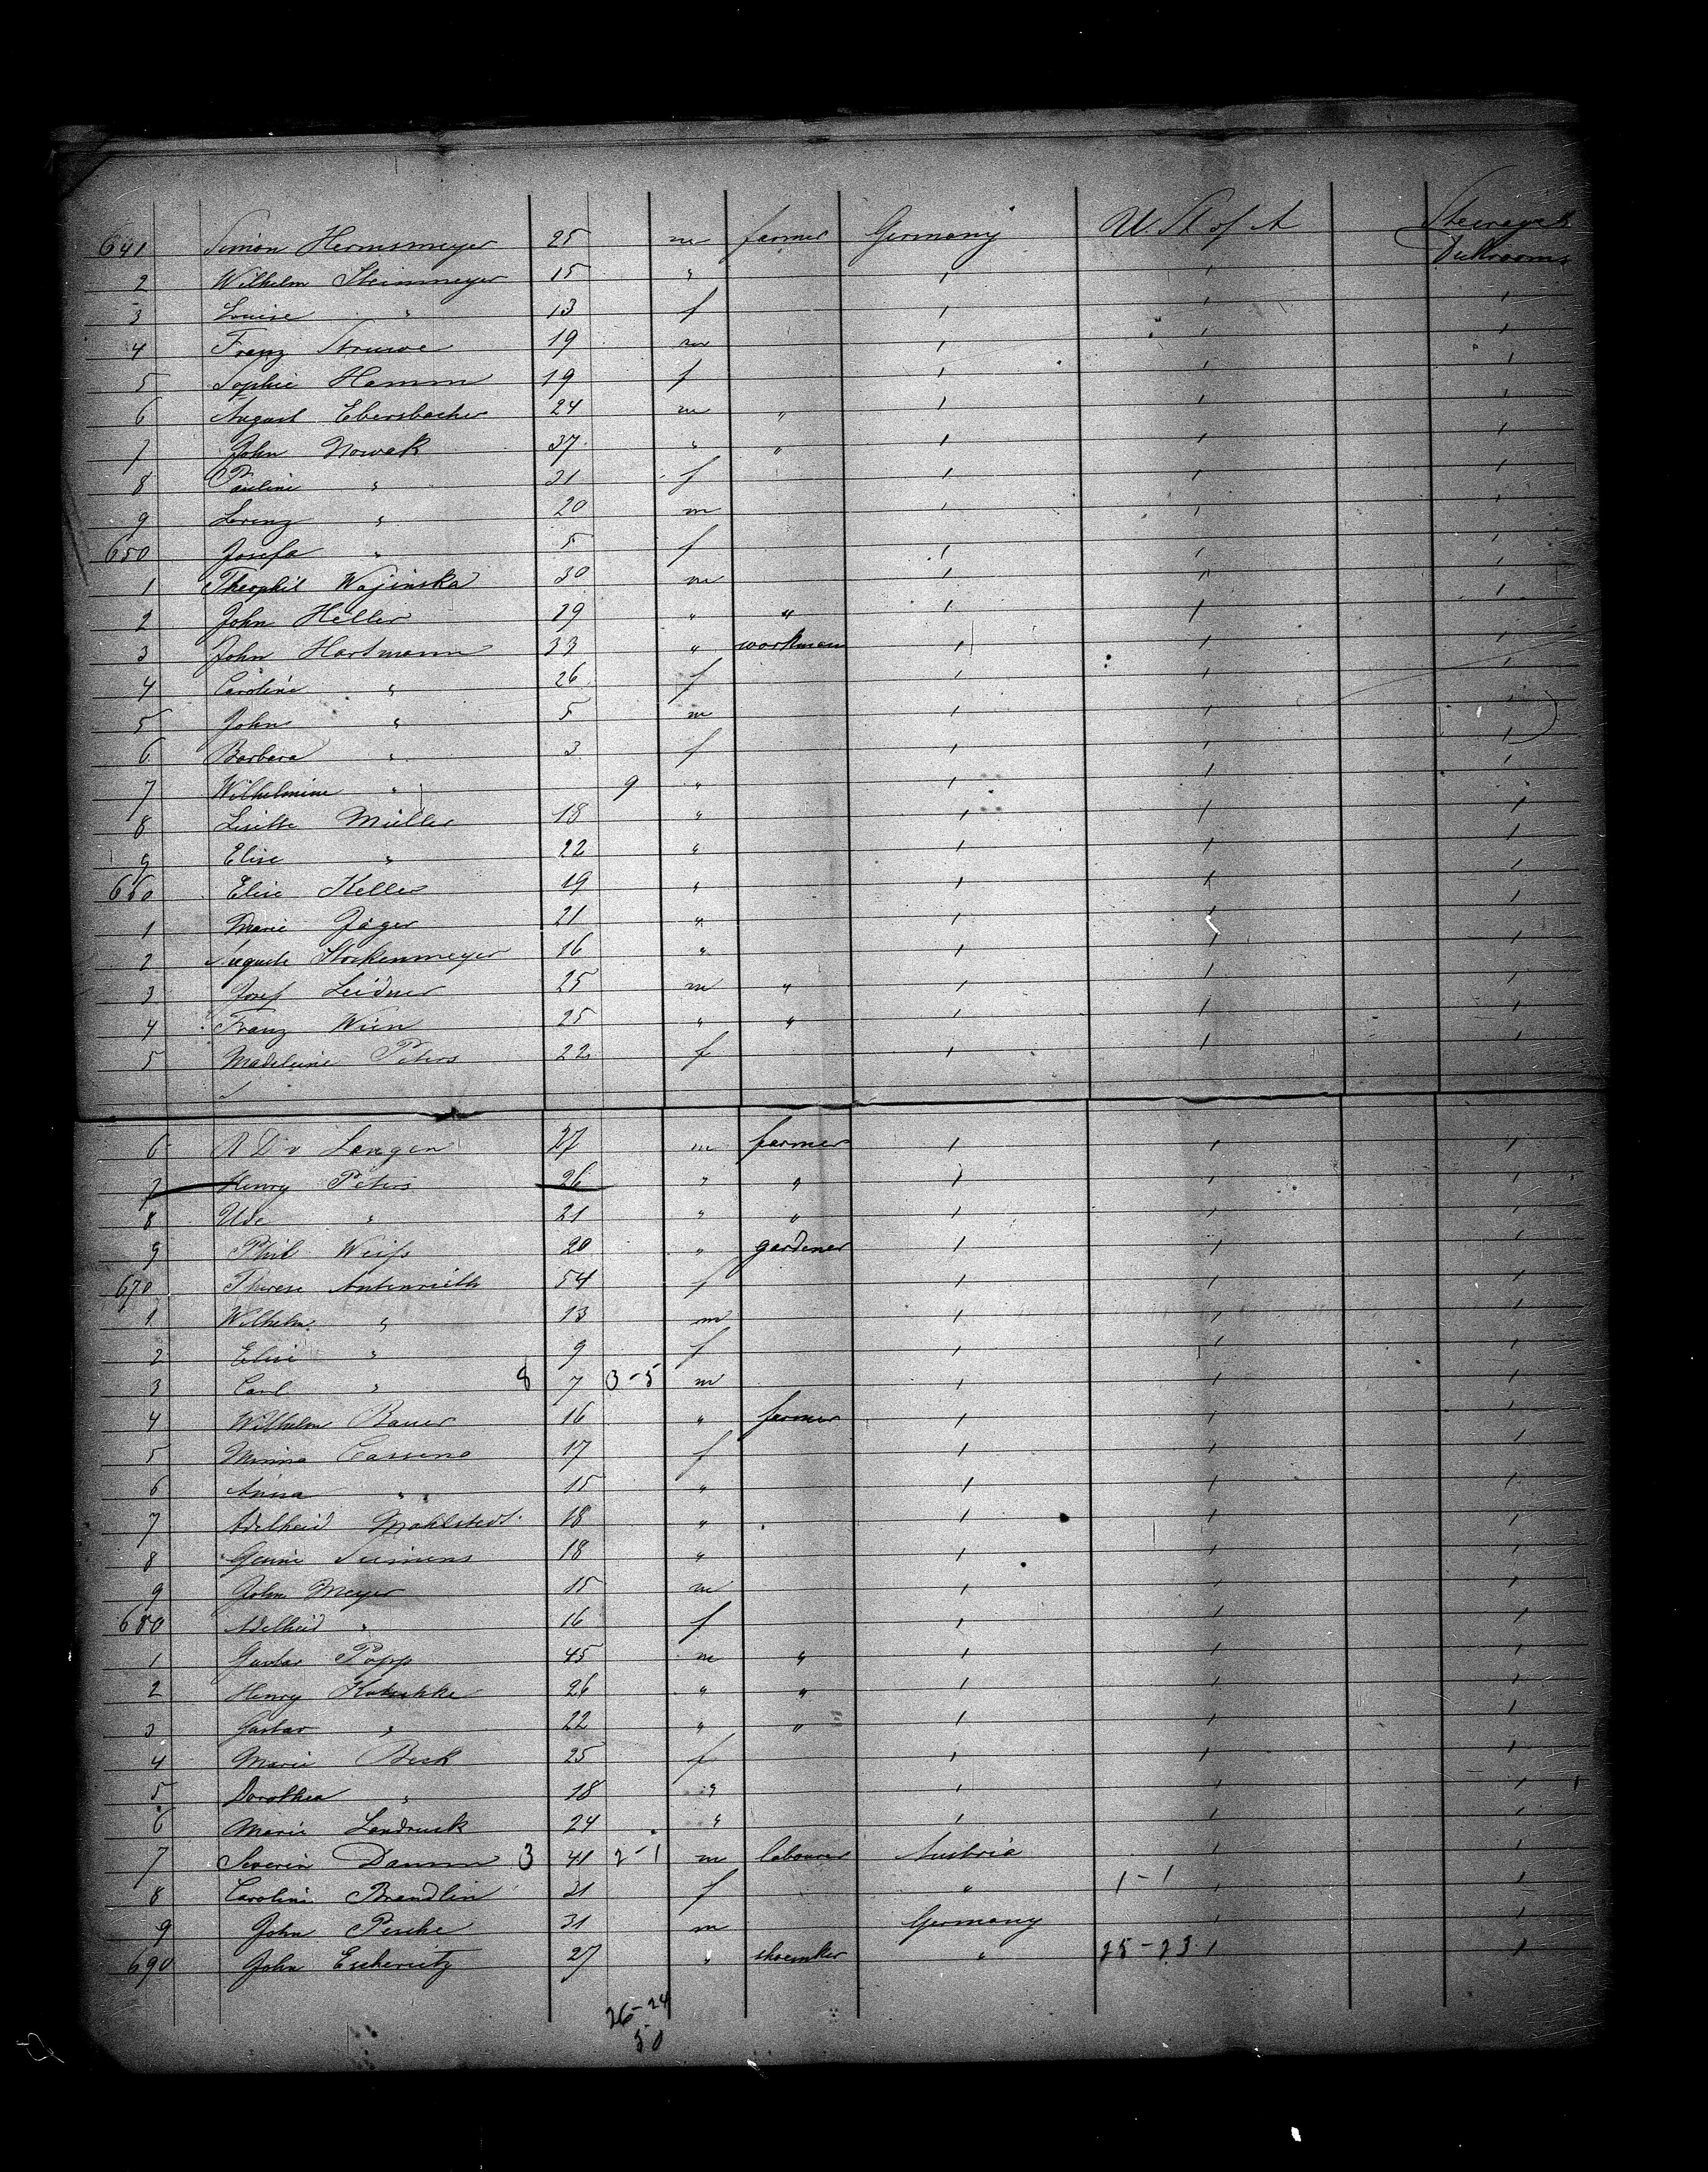 641 Simon Hermsmeyer 25 m farmer Germany U St of A Steerage &
2 Wilhelm Steinmeyer 15 " ' ' Deckrooms
3 Louise " 13 f ' ' '
4 Franz Struwe 19 m ' ' '
5 Sophie Hamm 19 f ' ' '
6 August Ebersbacher 24 m " ' ' '
7 John Nowak 37 " " ' ' '
8 Pauline " 21 f ' ' '
9 Lorenz " 20 m ' ' '
650 Josefa " 5 f ' ' '
1 Theophil Wojinska 30 m ' ' '
2 John Heller 29 " " ' ' '
3 John Hartmann 33 " workman ' ' '
4 Caroline " 26 f ' ' '
5 John " 5 m ' ' '
6 Barbara " 3 f ' ' '
7 Wilhelmine " 9 " ' ' '
8 Lisette Müller 18 " ' ' '
9 Elise " 22 " ' ' '
660 Elise Keller 19 " ' ' '
1 Marie Jäger 21 " ' ' '
2 Auguste Stockenmeyer 16 " ' ' '
3 Josef Leidner 25 m " ' ' '
4 Franz Wien 25 " " ' ' '
5 Madeleine Peters 22 f ' ' '
6 A D v Langen 27 m farmer ' ' '
7 Henry Peters 26 " " ' ' '
8 Ude " 21 " " ' ' '
9 Phil Weiss 20 " gardener ' ' '
670 Therese Autenrieth 54 f ' ' '
1 Wilhelm " 13 m ' ' '
2 Elise " 9 f ' ' '
3 Carl " 8 7 3-5 m ' ' '
4 Wilhelm Bauer 16 " farmer ' ' '
5 Minna Cassens 17 f ' ' '
6 Anna " 15 " ' ' '
7 Adelheid Mahlstedt 18 " ' ' '
8 Gesine Siemens 18 " ' ' '
9 John Meyer 15 m ' ' '
680 Adelheid " 16 f ' ' '
1 Gustav Popp 45 m " ' ' '
2 Henry 26 " " ' ' '
3 Gustav " 22 " " ' ' '
4 Marie Beck 25 f ' ' '
5 Dorothea " 18 " ' ' '
6 Marie 24 " ' ' '
7 Severin Damm 3 41 2-1 m labourer Austria ' '
8 Caroline Brendlin 31 f " 1-1 ' '
9 John Peschke 31 m Germany ' '
690 John 27 " shoemker " 25-23 ' '
26-24
50